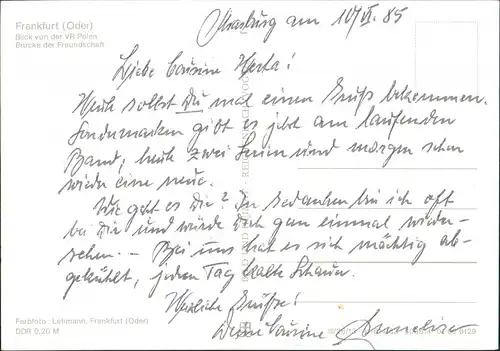 Frankfurt (Oder)
Blick von der VR Polen
Brücke der Freundschaft
Strasburg am 10/VI. 85
Liebe Cousine Herta!
Heute sollst Du mal einen Gruß bekommen.
Sondermarken gibt es jetzt am laufenden
Band, heute zwei Serien und morgen schon
wieder eine neue.
Wie geht es Dir? In Gedanken bin ich oft
bei Dir und würde Dich gern einmal wieder-
sehen. – Bei uns hat es sich mächtig ab-
gekühlt, jeden Tag kalte Schauer.
Herzliche Grüße!
Deine Cousine Annelise
Farbfoto: Lehmann, Frankfurt (Oder)
DDR 0,20 M